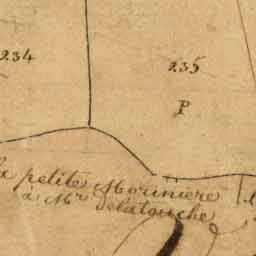 234
235
P
la petite Moriniere
à Mr delatouche